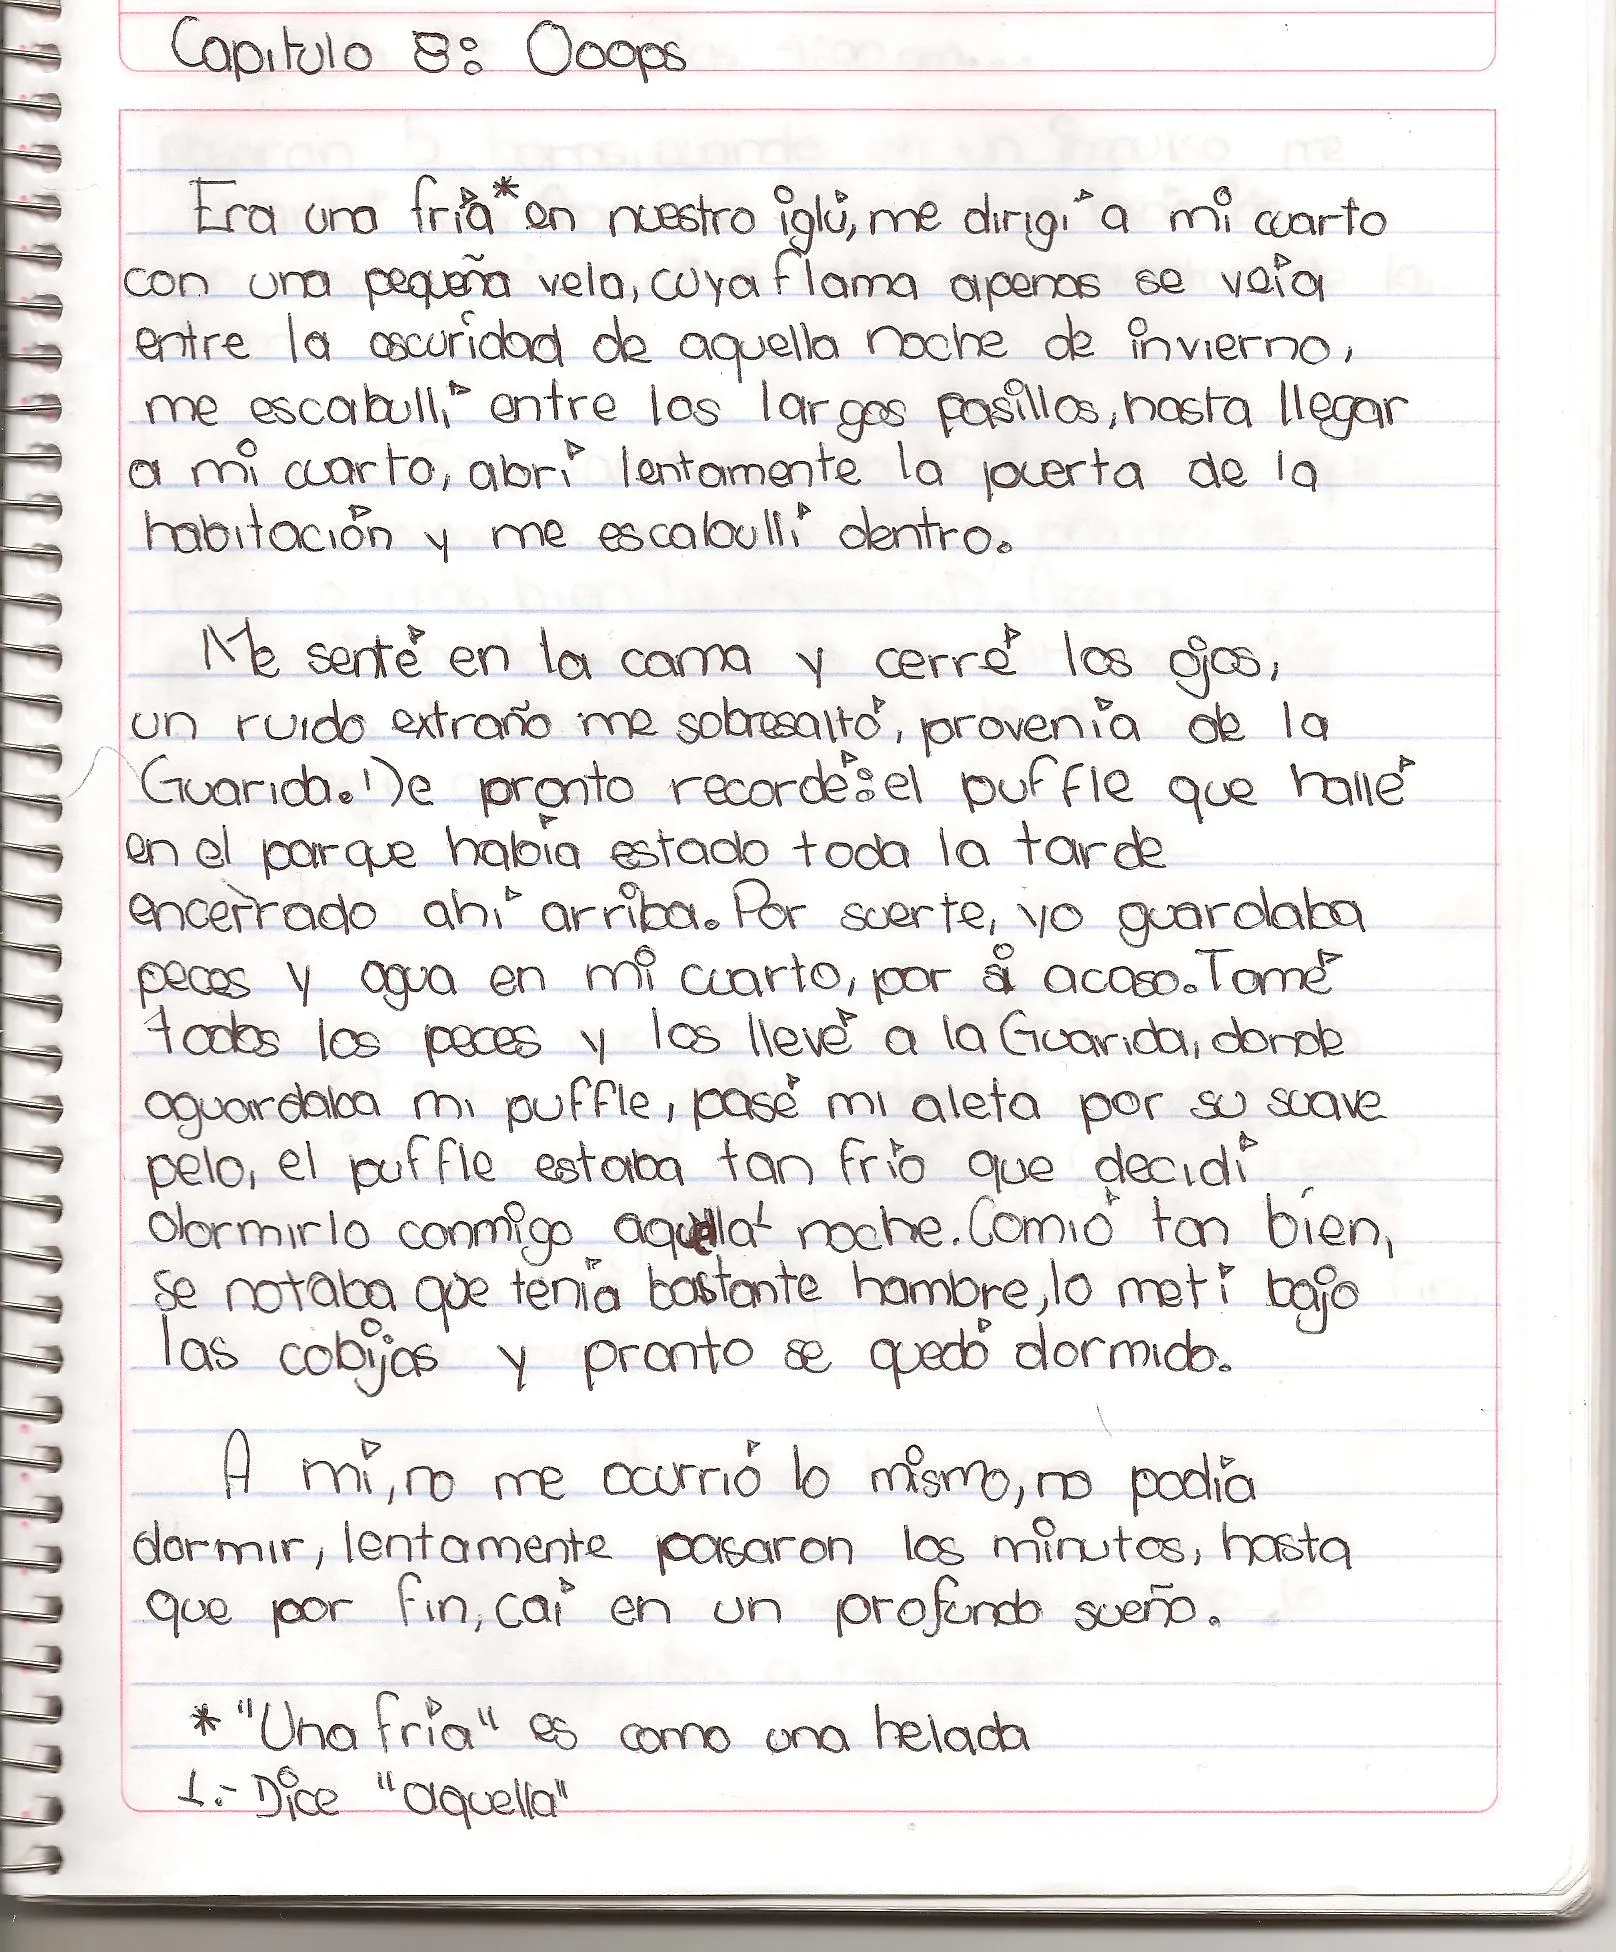 Capitulo 8: Ooops
Era una fría* en nuestro iglú, me dirigí a mi cuarto
con una pequeña vela, cuya flama apenas se veía
entre la oscuridad de aquella noche de invierno,
me escabullí entre los largos pasillos, hasta llegar
a mi cuarto, abrí lentamente la puerta de la
habitación y me escabullí dentro.
Me senté en la cama y cerré los ojos,
un ruido extraño me sobresaltó, provenía de la
Guarida. De pronto recordé: el puffle que hallé
en el parque había estado toda la tarde
encerrado ahí arriba. Por suerte, yo guardaba
peces y agua en mi cuarto, por si acaso. Tomé
todos los peces y los llevé a la Guarida, donde
aguardaba mi puffle, pasé mi aleta por su suave
pelo, el puffle estaba tan frío que decidí
dormirlo conmigo aquella¹ noche. Comió tan bien,
se notaba que tenía bastante hambre, lo metí bajo
las cobijas y pronto se quedó dormido.
A mí, no me ocurrió lo mismo, no podía
dormir, lentamente pasaron los minutos, hasta
que por fin, caí en un profundo sueño.
* "Una fría" es como una helada
1.- Dice "aquella"